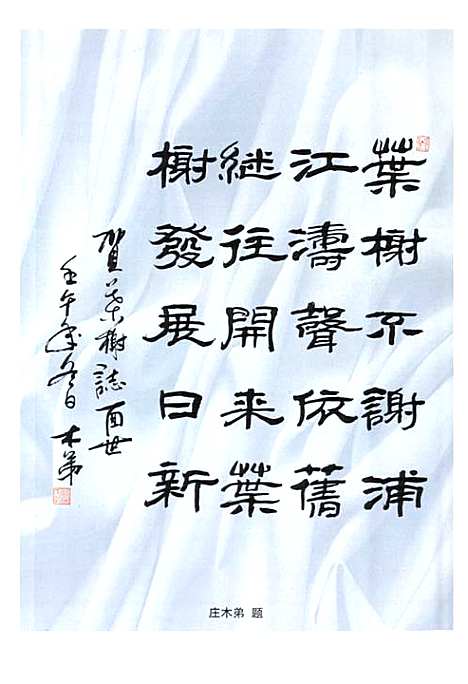 葉榭不謝浦
江濤聲依舊
継往開来葉
榭發展日新
賀葉榭誌面世
壬午年冬日 木弟
庄木弟 题